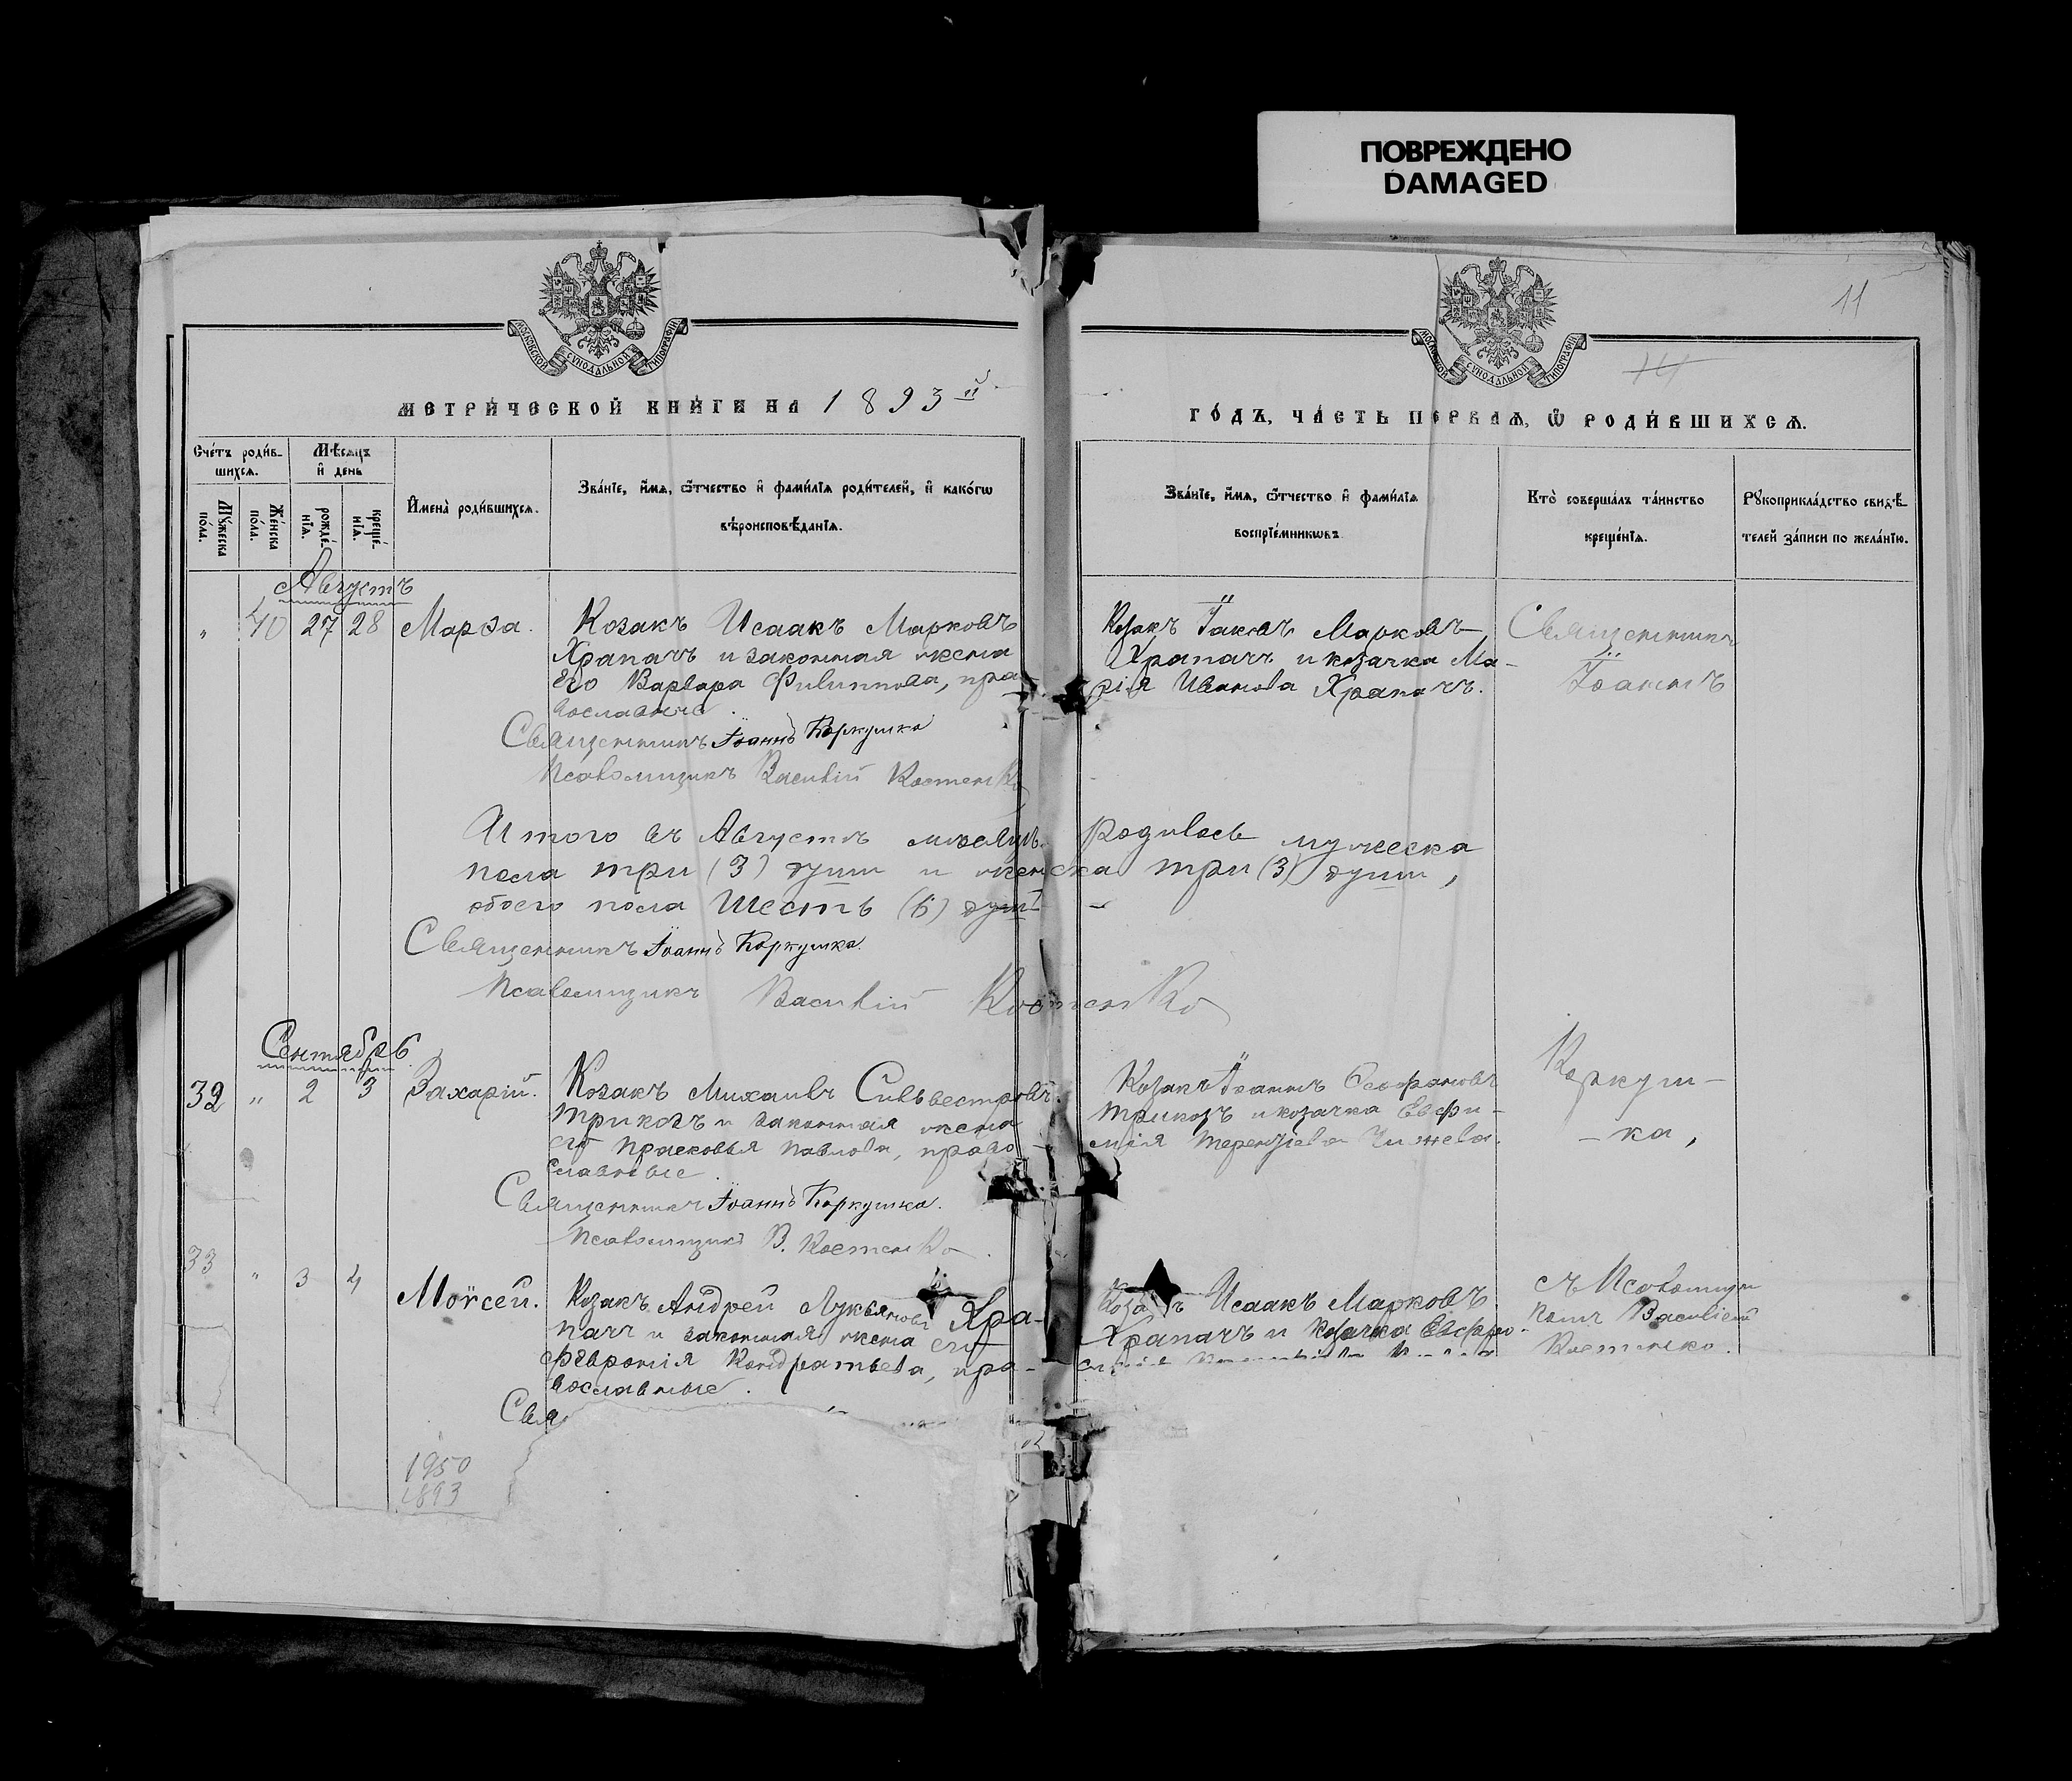 ПОВРЕЖДЕНО
DAMAGED
11
14
МОСКОВСКОЙ СѴНОДАЛЬНОЙ ТИПОГРАФІИ
МОСКОВСКОЙ СѴНОДАЛЬНОЙ ТИПОГРАФІИ
МЕТРИ́ЧЕСКОЙ КНИ́ГИ НА 1893й
ГО́ДЪ, ЧА́СТЬ ПЕРВАѦ, Ѽ РОДИ́ВШИХСѦ.
Сче́тъ роди́в-
шихсѧ.
Мѣ́сѧцъ
и҆ день
Мꙋ́жеска
по́ла.
Же́нска
по́ла.
рожде́-
нїѧ.
креще́-
нїѧ.
И҆мена̀ роди́вшихсѧ.
Зва́нїе, и҆́мѧ, ѻ҆́тчество и҆ фами́лїѧ роди́телей, и҆ како́гѡ
вѣроисповѣ́данїѧ.
Зва́нїе, и҆́мѧ, ѻ҆́тчество и҆ фами́лїѧ
воспрїе́мникѡвъ.
Кто̀ соверша́лъ та́инство
креще́нїѧ.
Рꙋкоприкла́дство свидѣ́-
телей за́писи по жела́нїю.
Августъ
" 40 27 28 Марѳа.
Козакъ Исаакъ Марковъ
Храпачъ и законная жена
его Варвара Филиппова, пра-
вославные.
Священникъ Іоаннъ Коркушка
Псаломщикъ Василій Костенко
Козакъ Іаковъ Марковъ
Храпачъ и козачка Ма-
рія Иванова Храпачъ.
Священникъ
Іоаннъ
Итого въ Августѣ мѣсяцѣ родилось мужеска
пола три (3) души и женска три (3) души,
обоего пола шесть (6) душъ
Священникъ Іоаннъ Коркушка.
Псаломщикъ Василій Костенко
Сентябрь
32 " 2 3 Захарій.
Козакъ Михаилъ Сильвестровъ
Трикозъ и законная жена
его Прасковья Павлова, право-
славные.
Священникъ Іоаннъ Коркушка.
Псаломщикъ В. Костенко.
Козакъ Іоаннъ Ѳеофановъ
Трикозъ и козачка Евфи-
мія Терентіева Чижева.
Коркуш-
-ка,
33 " 3 4 Моѵсей.
Козакъ Андрей Лукьяновъ Хра-
пачъ и законная жена его
Февронія Кондратьева, пра-
вославные.
Свя
Козакъ Исаакъ Марковъ
Храпачъ и козачка Евфро-
съ Псаломщи-
комъ Василіемъ
Костенко.
1950
1893